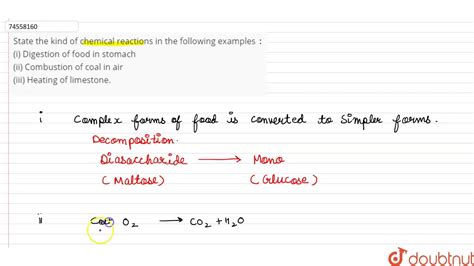 74558160
State the kind of chemical reactions in the following examples :
(i) Digestion of food in stomach
(ii) Combustion of coal in air
(iii) Heating of limestone.
i Complex forms of food is converted to simpler forms.
Decomposition.
Diasaccharide → Mono
(Maltose) (Glucose)
ii O2 → CO2 + H2O
doubtnut